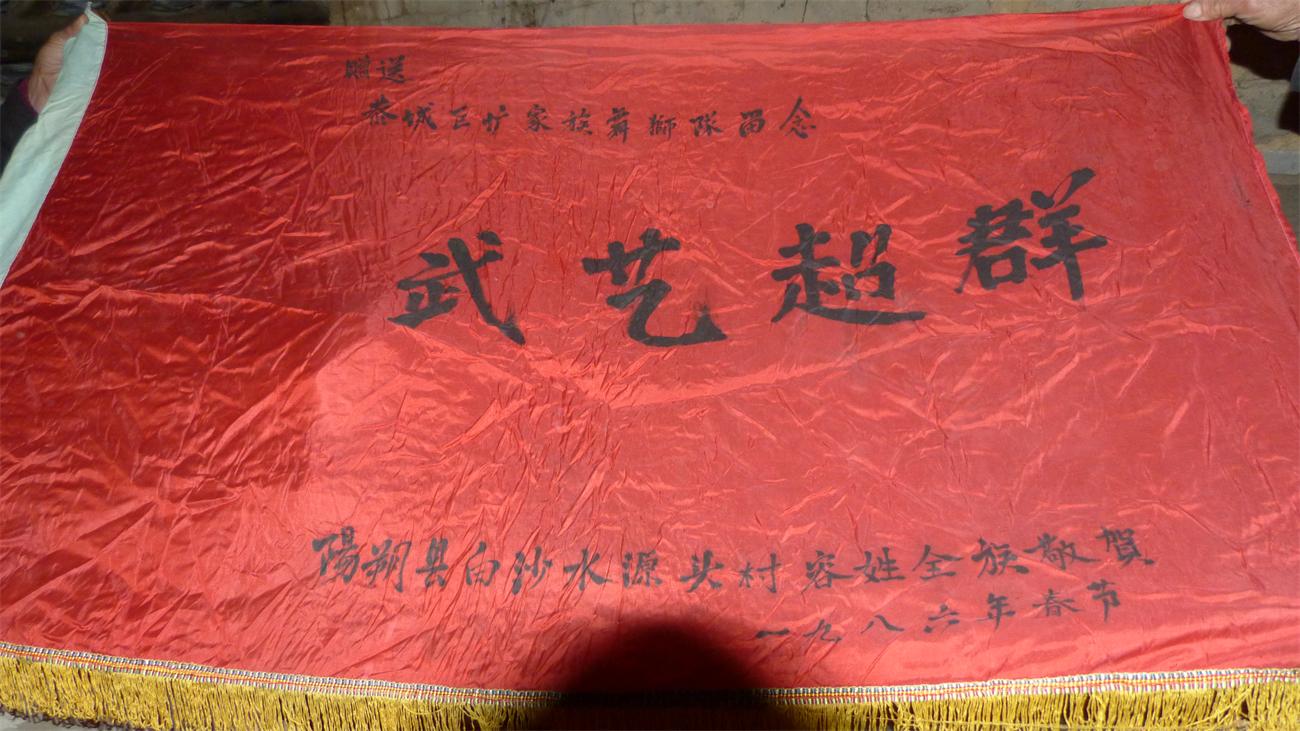 赠送
恭城巨圹家族舞獅隊留念
武艺超群
陽朔县白沙水源头村容姓全族敬賀
一九八六年春节